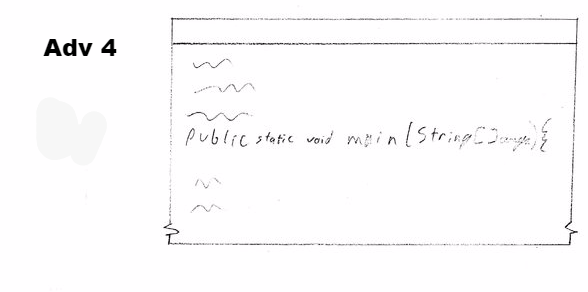 Adv 4
public static void main(String[]args){